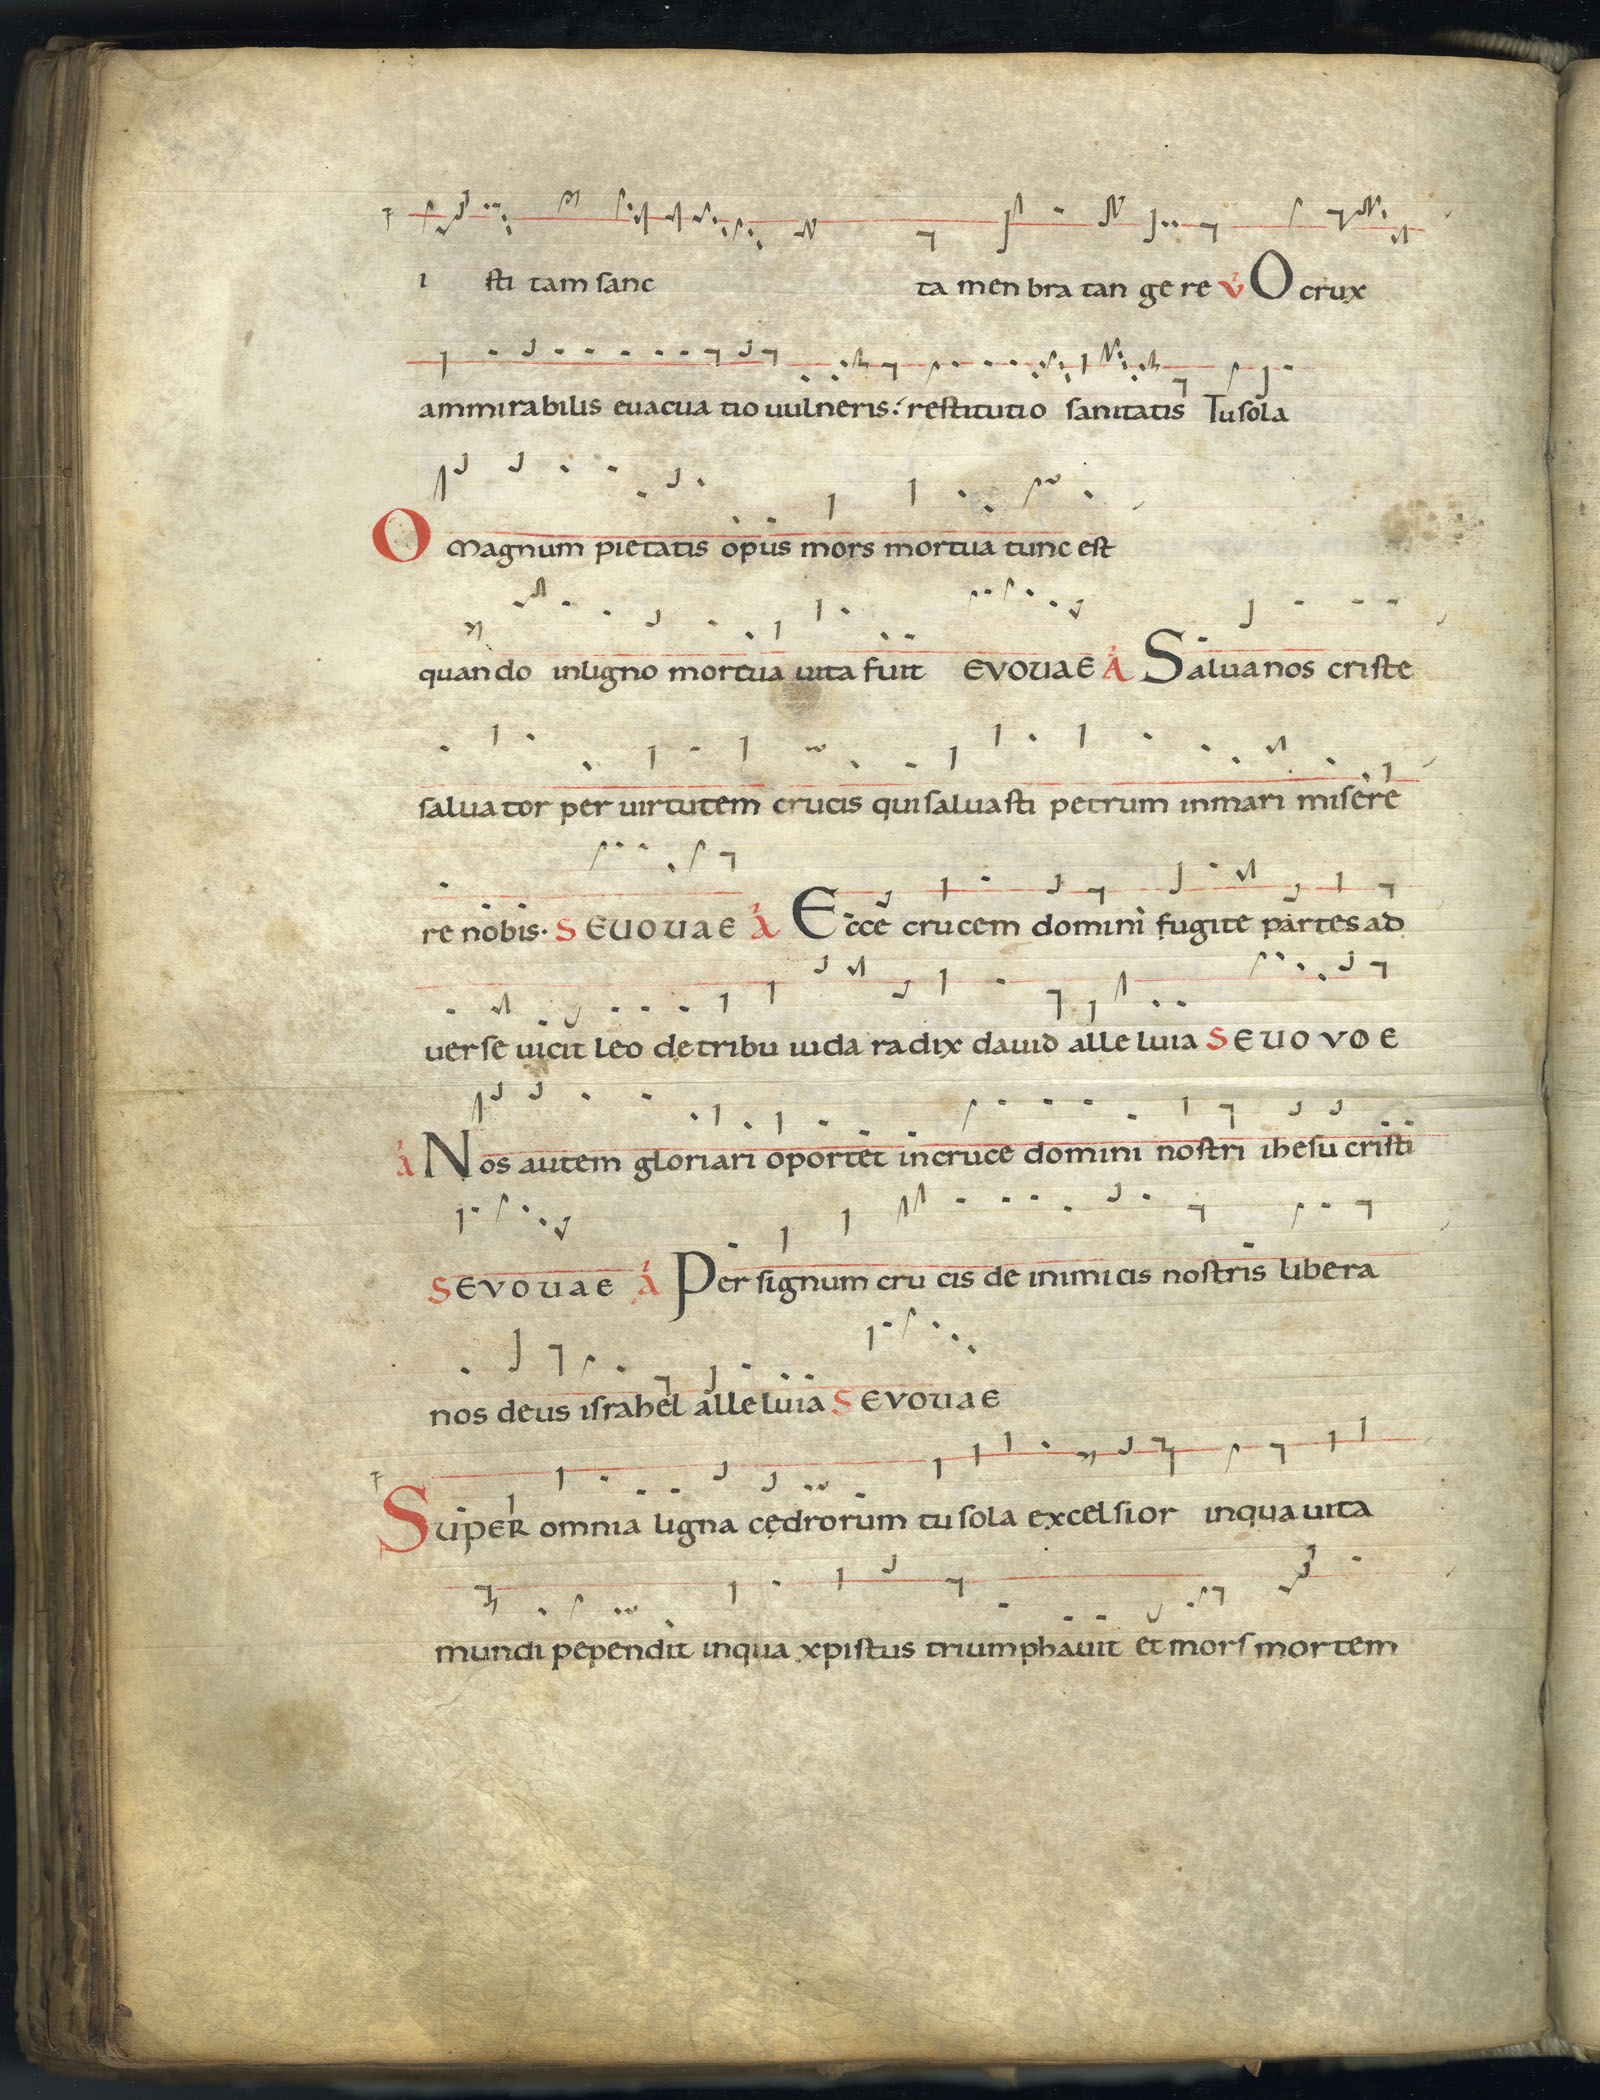 i sti tam sanc ta men bra tan ge re v O crux
ammirabilis euacua tio uulneris: restitutio sanitatis Tu sola
O magnum pietatis opus mors mortua tunc est
quando inligno mortua uita fuit EVOUAE A Salua nos criste
saluator per uirtutem crucis qui saluasti petrum inmari misere
re nobis. SEUOUAE A Ecce crucem domini fugite partes ad
uerse uicit leo detribu iuda radix dauid alle luia SEUOVOE
A Nos autem gloriari oportet incruce domini nostri ihesu cristi
SEVOUAE A Per signum cru cis de inimicis nostris libera
nos deus israhel alleluia SEVOUAE
Super omnia ligna cędrorum tu sola excelsior inqua uita
mundi pependit inqua xpistus triumphauit et mors mortem